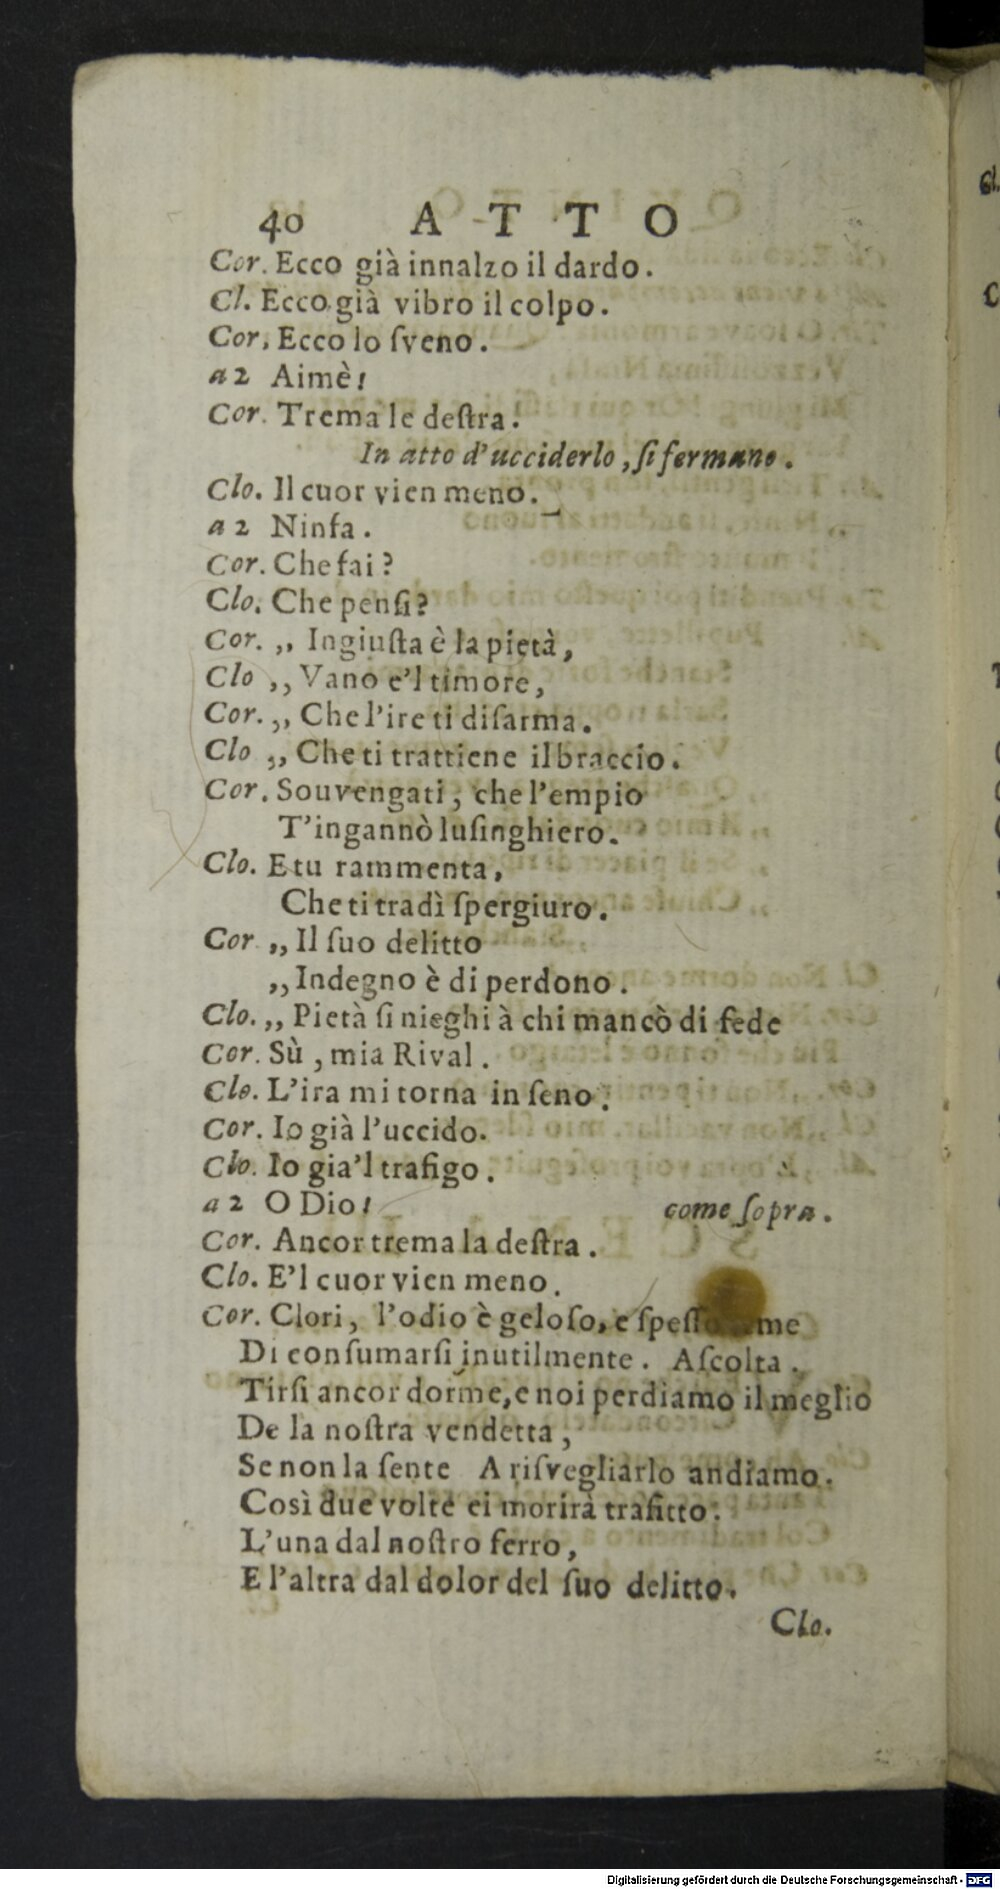 40 ATTO
Cor. Ecco già innalzo il dardo.
Cl. Ecco già vibro il colpo.
Cor. Ecco lo ſveno.
a 2 Aimè!
Cor. Trema le deſtra.
In atto d'ucciderlo, ſi fermano.
Clo. Il cuor vien meno.
a 2 Ninfa.
Cor. Che fai?
Clo. Che penſi?
Cor. ,, Ingiuſta è la pietà,
Clo ,, Vano e'l timore,
Cor. ,, Che l'ire ti diſarma.
Clo ,, Che ti trattiene il braccio.
Cor. Souvengati, che l'empio
T'ingannò luſinghiero.
Clo. E tu rammenta,
Che ti tradì ſpergiuro.
Cor ,, Il ſuo delitto
,, Indegno è di perdono.
Clo. ,, Pietà ſi nieghi à chi mancò di fede
Cor. Sù, mia Rival.
Clo. L'ira mi torna in ſeno.
Cor. Io già l'uccido.
Clo. Io gia'l trafigo.
a 2 O Dio! come ſopra.
Cor. Ancor trema la deſtra.
Clo. E'l cuor vien meno.
Cor. Clori, l'odio è geloſo, e ſpeſſo me
Di conſumarſi inutilmente. Aſcolta.
Tirſi ancor dorme, e noi perdiamo il meglio
De la noſtra vendetta,
Se non la ſente A riſvegliarlo andiamo.
Così due volte ei morirà trafitto:
L'una dal noſtro ferro,
E l'altra dal dolor del ſuo delitto.
Clo.
Gl.
C
Digitalisierung gefördert durch die Deutsche Forschungsgemeinschaft - DFG